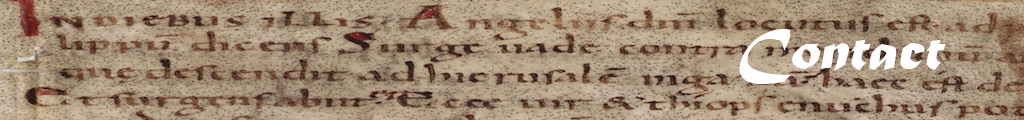 N DIEBUS ILLIS. Angelus dnī locutus est ad
lippū dicens Surge uade contra
que descendit ad hierusalē in haec est de
Et surgens abiit Ecce uir &thiops eunuchus po
Contact